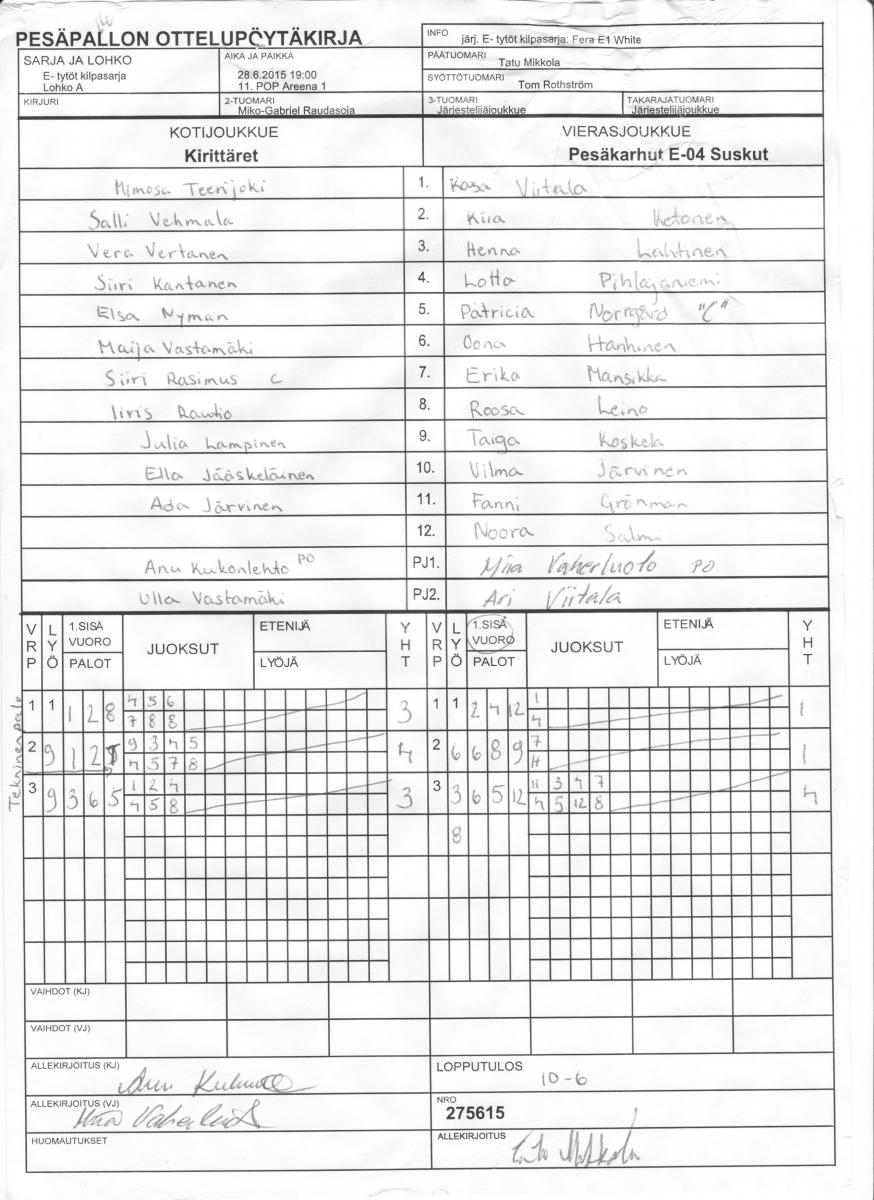 PESÄPALLON OTTELUPÖYTÄKIRJA
INFO järj. E- tytöt kilpasarja: Fera E1 White
SARJA JA LOHKO
E- tytöt kilpasarja
Lohko A
AIKA JA PAIKKA
28.6.2015 19:00
11. POP Areena 1
PÄÄTUOMARI
Tatu Mikkola
SYÖTTÖTUOMARI
Tom Rothström
KIRJURI
2-TUOMARI
Miko-Gabriel Raudasoja
3-TUOMARI
Järjestelijäjoukkue
TAKARAJATUOMARI
Järjestelijäjoukkue
KOTIJOUKKUE
Kirittäret
VIERASJOUKKUE
Pesäkarhut E-04 Suskut
Mimosa Teerijoki 1. Kasa Viitala
Salli Vehmala 2. Kiia Ketonen
Vera Vertanen 3. Henna Lahtinen
Siiri Kantanen 4. Lotta Pihlajaniemi
Elsa Nyman 5. Patricia Norrgård "C"
Maija Vastamäki 6. Oona Hanhinen
Siiri Rasimus C 7. Erika Mansikka
Iiris Rautio 8. Roosa Leino
Julia Lampinen 9. Taiga Koskela
Ella Jääskeläinen 10. Vilma Järvinen
Ada Järvinen 11. Fanni Grönman
12. Noora Salmi
Anu Kukonlehto PO PJ1. Miia Vaherluoto PO
Ulla Vastamäki PJ2. Ari Viitala
VRP LYÖ 1.SISÄ VUORO PALOT JUOKSUT ETENIJÄ LYÖJÄ YHT VRP LYÖ 1.SISÄ VUORO PALOT JUOKSUT ETENIJÄ LYÖJÄ YHT
1 1 1 2 8 4 5 6 3 1 1 2 4 12 1 1
7 8 8 4
Tekninenpalo
2 9 1 2 9 3 4 5 4 2 6 6 8 9 7 1
4 5 7 8
3 9 3 6 5 1 2 4 3 3 3 6 5 12 11 3 4 7 4
4 5 8 4 5 12 8
8
VAIHDOT (KJ)
VAIHDOT (VJ)
ALLEKIRJOITUS (KJ)
LOPPUTULOS
10-6
ALLEKIRJOITUS (VJ) Miia Vaherluoto
NRO
275615
HUOMAUTUKSET
ALLEKIRJOITUS